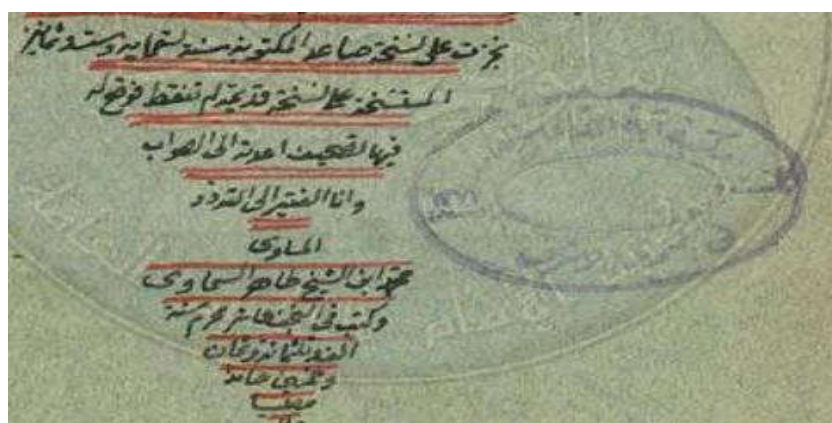 نجزت على نسخة صاعد المكتوبة سنة ستماية وست وثمانين
المستنسخة على نسخة قديمة لم تنقط فوقع له
فيها تصحيف اعدته الى الصواب
وانا الفقير الى الله ذو
المساوى
محمد ابن الشيخ طاهر السماوى
وكتب فى النجف عاشر محرم سنة
الف وثلثمائة وثمان
حامدا
مصليا